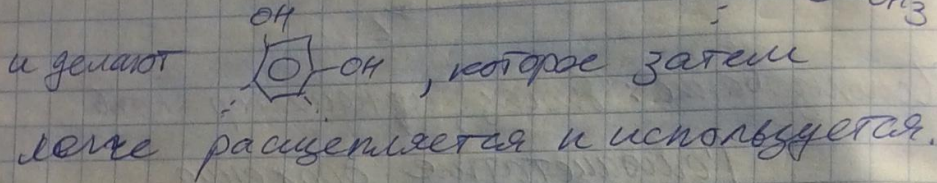 CH3
OH
и делают -OH, которое затем
легче расщепляется и используется.